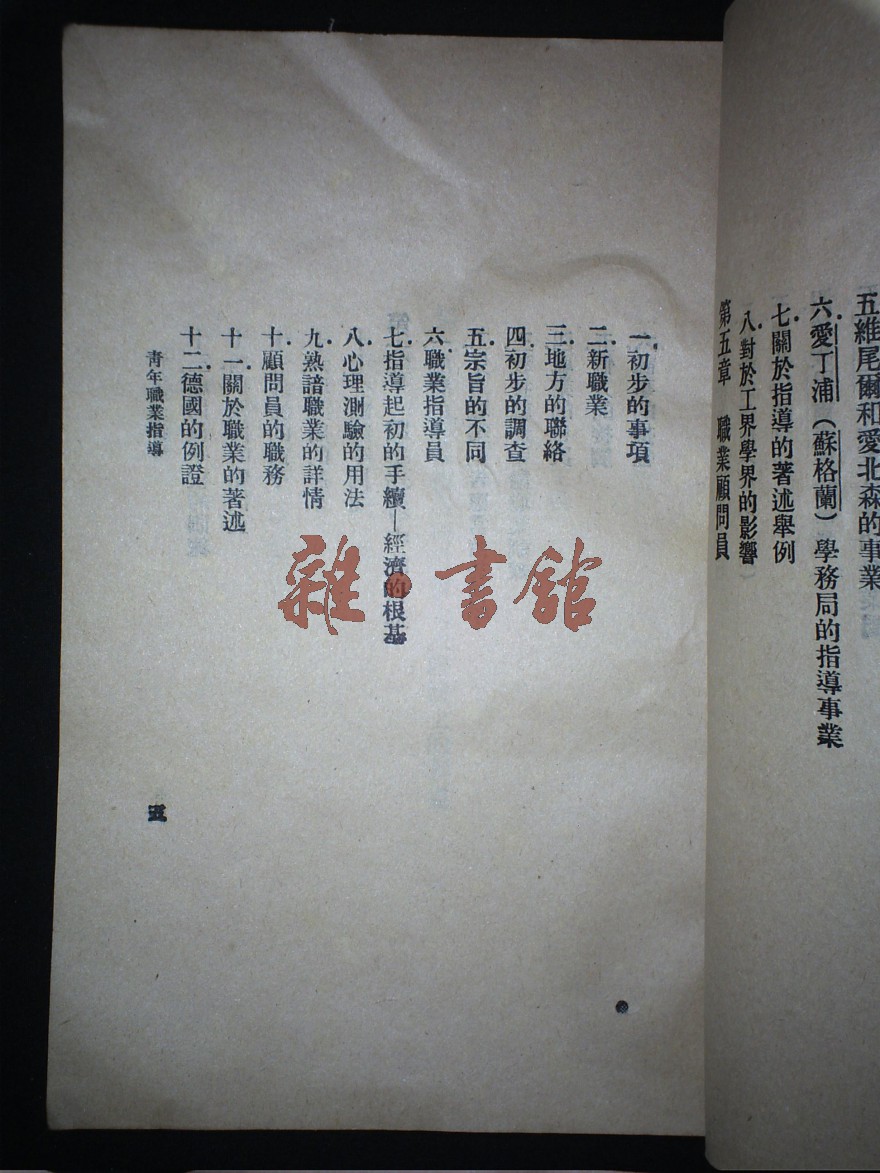 五.維尾爾和愛北森的事業
六.愛丁浦(蘇格蘭)學務局的指導事業
七.關於指導的著述舉例
八.對於工界學界的影響
第五章 職業顧問員
一.初步的事項
二.新職業
三.地方的聯絡
四.初步的調查
五.宗旨的不同
六.職業指導員
七.指導起初的手續—經濟的根基
八.心理測驗的用法
九.熟諳職業的詳情
十.顧問員的職務
十一.關於職業的著述
十二.德國的例證
青年職業指導
五
雜·書館